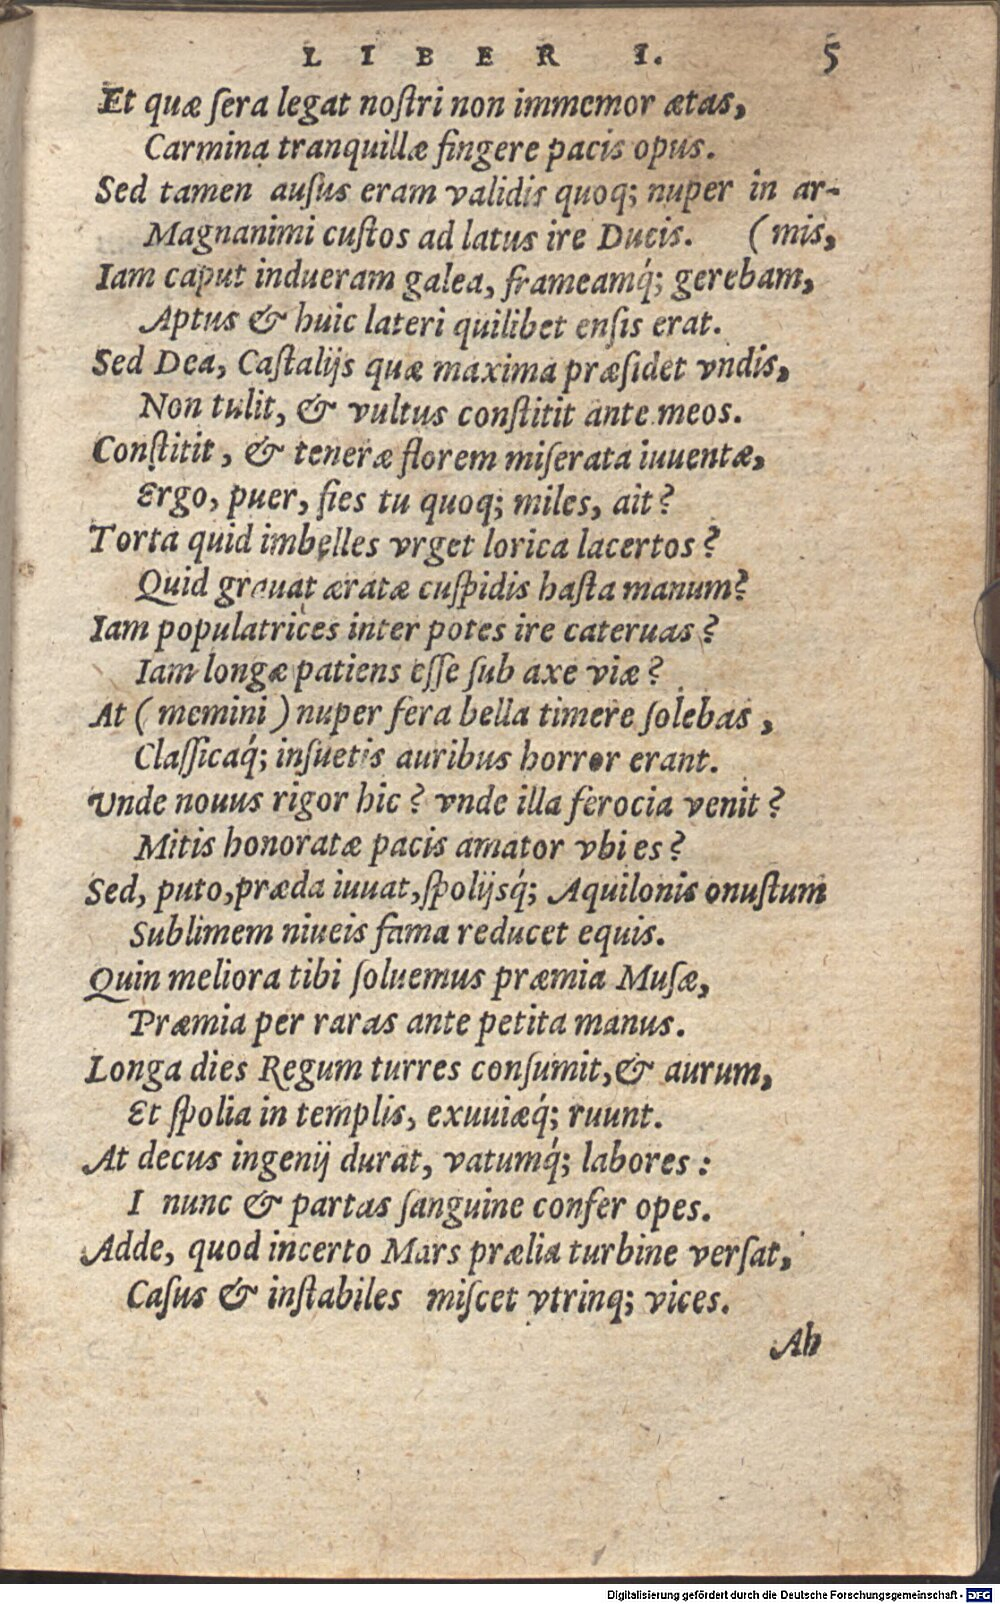 LIBER I. 5
Et quæ ſera legat noſtri non immemor ætas,
Carmina tranquillæ fingere pacis opus.
Sed tamen auſus eram validis quoq; nuper in ar-
Magnanimi cuſtos ad latus ire Ducis. (mis,
Iam caput indueram galea, frameamq́; gerebam,
Aptus & huic lateri quilibet enſis erat.
Sed Dea, Caſtalijs quæ maxima præſidet vndis,
Non tulit, & vultus conſtitit ante meos.
Conſtitit, & teneræ florem miſerata iuuentæ,
Ergo, puer, fies tu quoq; miles, ait?
Torta quid imbelles vrget lorica lacertos?
Quid grauat æratæ cuſpidis haſta manum?
Iam populatrices inter potes ire cateruas?
Iam longæ patiens eſſe ſub axe viæ?
At (memini) nuper fera bella timere ſolebas,
Claſſicaq́; inſuetis auribus horror erant.
Vnde nouus rigor hic? vnde illa ferocia venit?
Mitis honoratæ pacis amator vbi es?
Sed, puto, præda iuuat, ſpolijsq́; Aquilonis onuſtum
Sublimem niueis fama reducet equis.
Quin meliora tibi ſoluemus præmia Muſæ,
Præmia per raras ante petita manus.
Longa dies Regum turres conſumit, & aurum,
Et ſpolia in templis, exuuiæq́; ruunt.
At decus ingenij durat, vatumq́; labores:
I nunc & partas ſanguine confer opes.
Adde, quod incerto Mars prælia turbine verſat,
Caſus & inſtabiles miſcet vtrinq; vices.
Ah
Digitalisierung gefördert durch die Deutsche Forschungsgemeinschaft - DFG